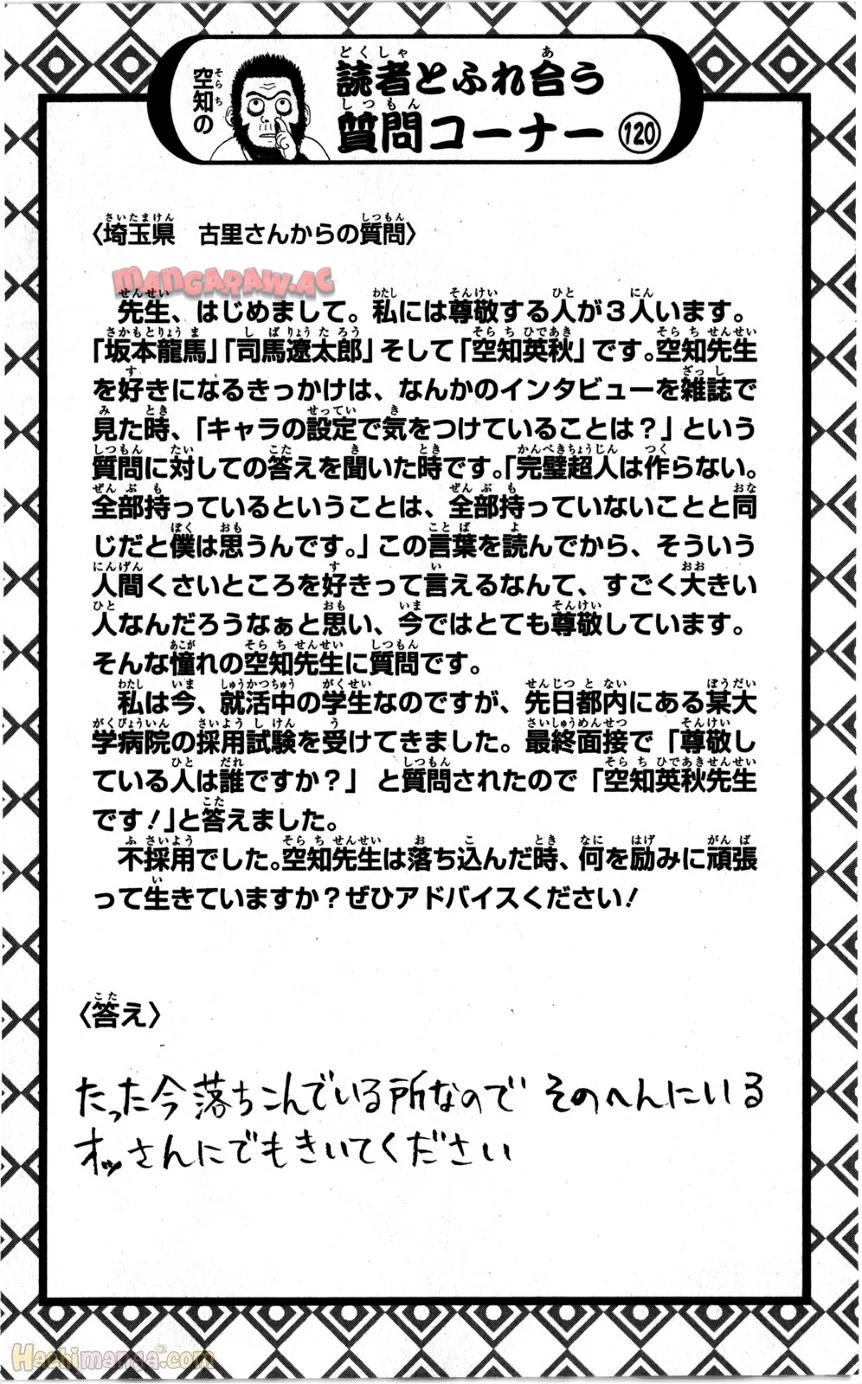 空知の
読者とふれ合う
質問コーナー 120
〈埼玉県 古里さんからの質問〉
mangaraw.ac
先生、はじめまして。私には尊敬する人が3人います。
「坂本龍馬」「司馬遼太郎」そして「空知英秋」です。空知先生
を好きになるきっかけは、なんかのインタビューを雑誌で
見た時、「キャラの設定で気をつけていることは?」という
質問に対しての答えを聞いた時です。「完璧超人は作らない。
全部持っているということは、全部持っていないことと同
じだと僕は思うんです。」この言葉を読んでから、そういう
人間くさいところを好きって言えるなんて、すごく大きい
人なんだろうなぁと思い、今ではとても尊敬しています。
そんな憧れの空知先生に質問です。
私は今、就活中の学生なのですが、先日都内にある某大
学病院の採用試験を受けてきました。最終面接で「尊敬し
ている人は誰ですか?」と質問されたので「空知英秋先生
です!」と答えました。
不採用でした。空知先生は落ち込んだ時、何を励みに頑張
って生きていますか?ぜひアドバイスください!
〈答え〉
たった今落ちこんでいる所なので そのへんにいる
オッさんにでもきいてください
Hachimanga.com